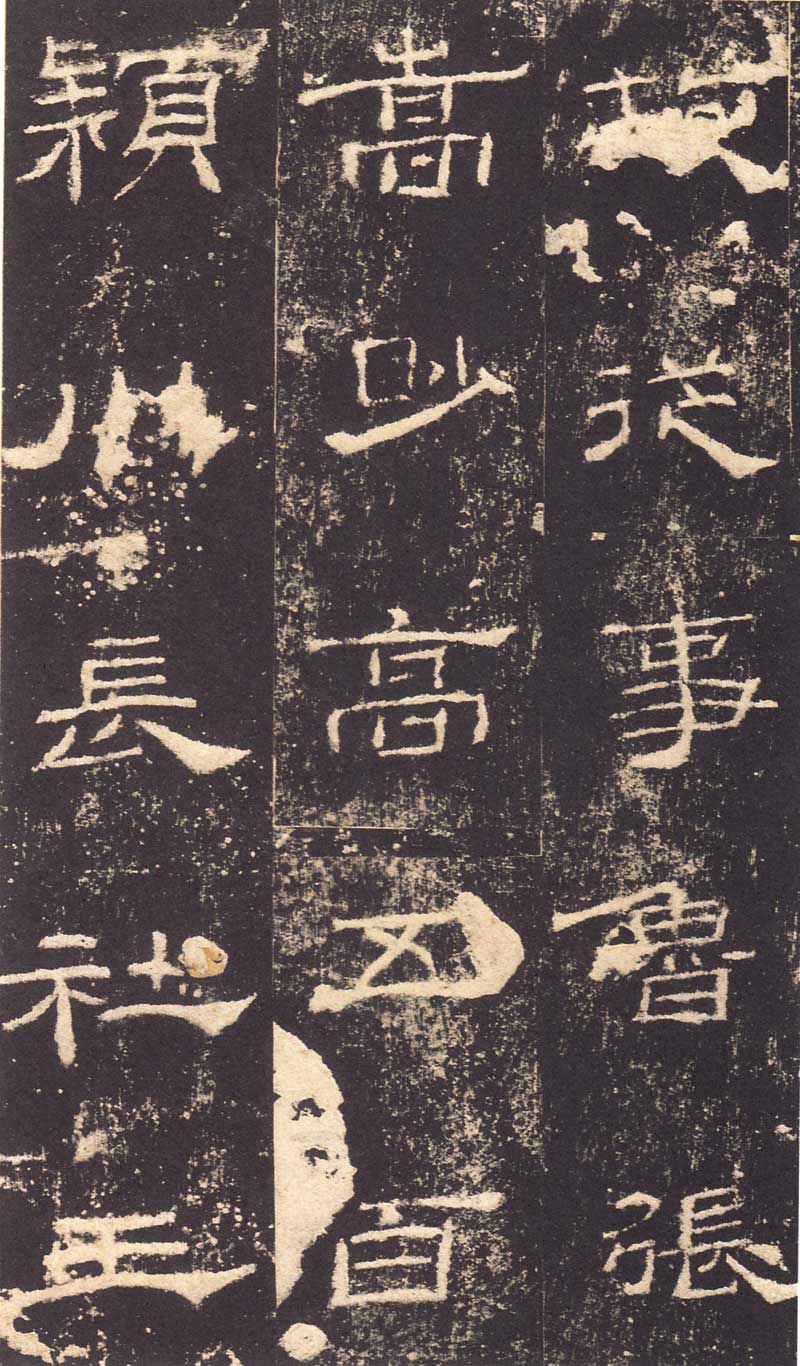 故從事魯張
嵩眇高五百
穎川長社王